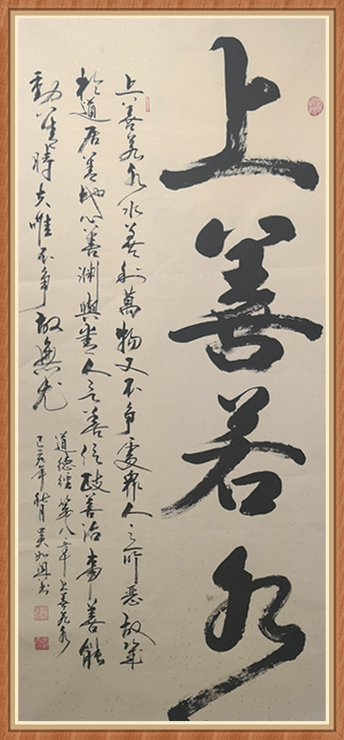 上善若水
上善若水水善利萬物又不争處衆人之所惡故幾
於道居善地心善渊與善人言善信政善治事善能
動善時夫唯不争故無尤
道德經第八章上善若水
己亥年秋月吴书